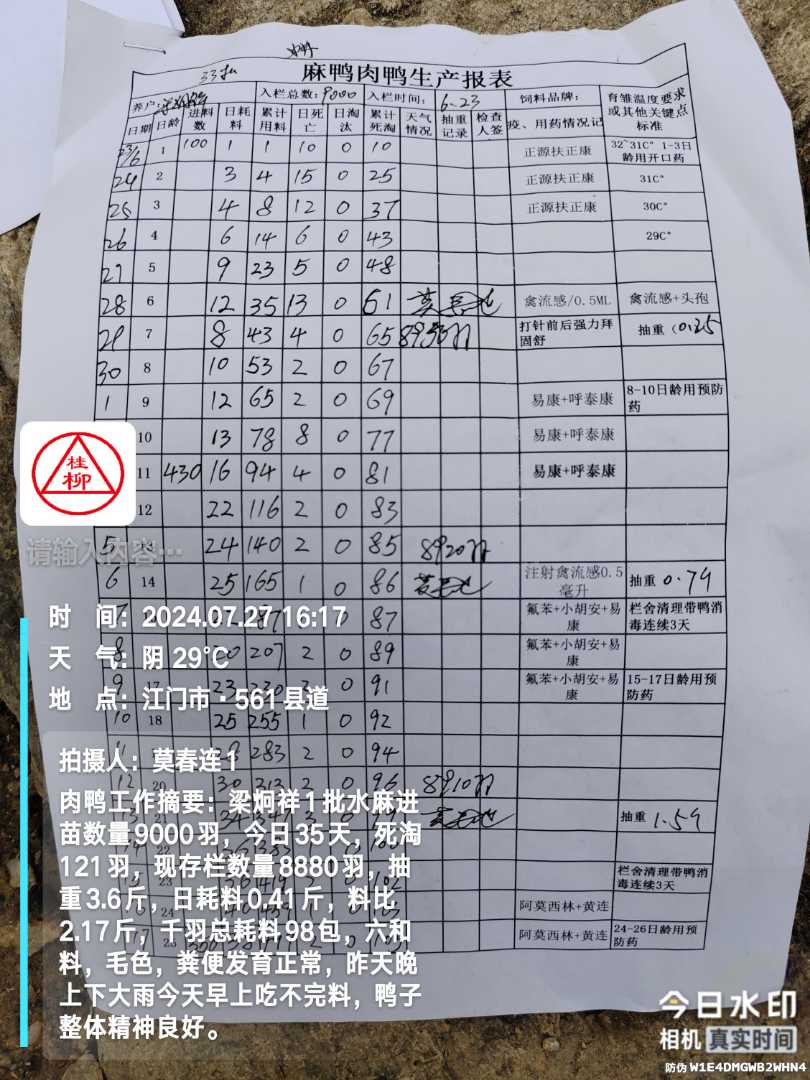 麻鸭肉鸭生产报表
养户: 入栏总数: 9000 入栏时间: 6.23 饲料品牌: 育雏温度要求或其他关键点标准
日期 日龄 进料数 日耗料 累计用料 日死亡 日淘汰 累计死淘 天气情况 抽重记录 检查人签 疫、用药情况记
23/6 1 100 1 1 10 0 10 正源扶正康 32~31C° 1-3日龄用开口药
24 2 3 4 15 0 25 正源扶正康 31C°
25 3 4 8 12 0 37 正源扶正康 30C°
26 4 6 14 6 0 43 29C°
27 5 9 23 5 0 48
28 6 12 35 13 0 61 禽流感/0.5ML 禽流感+头孢
29 7 8 43 4 0 65 打针前后强力拜固舒 抽重(0.25
30 8 10 53 2 0 67
1 9 12 65 2 0 69 易康+呼泰康 8-10日龄用预防药
10 13 78 8 0 77 易康+呼泰康
11 430 16 94 4 0 81 易康+呼泰康
12 22 116 2 0 83
5 13 24 140 2 0 85 8920羽
6 14 25 165 1 0 86 注射禽流感0.5毫升 抽重 0.79
1 0 87 氟苯+小胡安+易康 栏舍清理带鸭消毒连续3天
8 20 207 2 0 89 氟苯+小胡安+易康
9 17 23 230 2 0 91 氟苯+小胡安+易康 15-17日龄用预防药
10 18 25 255 1 0 92
11 28 283 2 0 94
12 20 30 313 2 0 96 8910羽
21 抽重 1.59
23 栏舍清理带鸭消毒连续3天
24 阿莫西林+黄连
25 阿莫西林+黄连 24-26日龄用预防药
桂
柳
请输入内容…
时 间: 2024.07.27 16:17
天 气: 阴 29℃
地 点: 江门市·561县道
拍摄人: 莫春连1
肉鸭工作摘要: 梁炯祥1批水麻进
苗数量9000羽，今日35天，死淘
121羽，现存栏数量8880羽，抽
重3.6斤，日耗料0.41斤，料比
2.17斤，千羽总耗料98包，六和
料，毛色，粪便发育正常，昨天晚
上下大雨今天早上吃不完料，鸭子
整体精神良好。
今日水印
相机 真实时间
防伪 W1E4DMGWB2WHN4